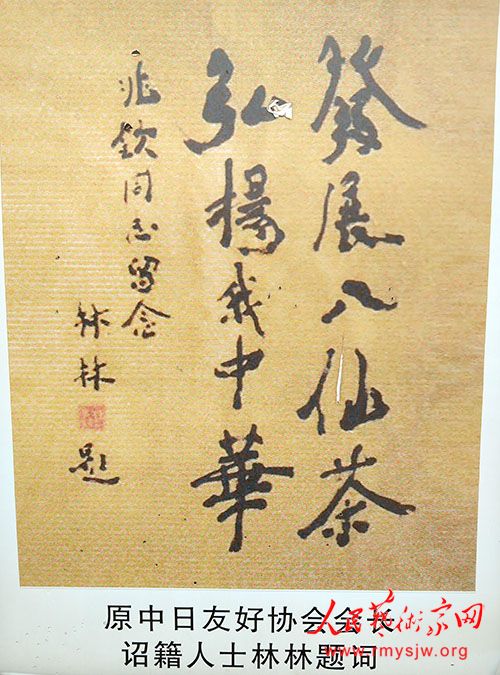 發展八仙茶
弘楊我中華
兆欽同志留念
林林
題
原中日友好协会会长
诏籍人士林林题词
人民艺術家网
www.rmysjw.org